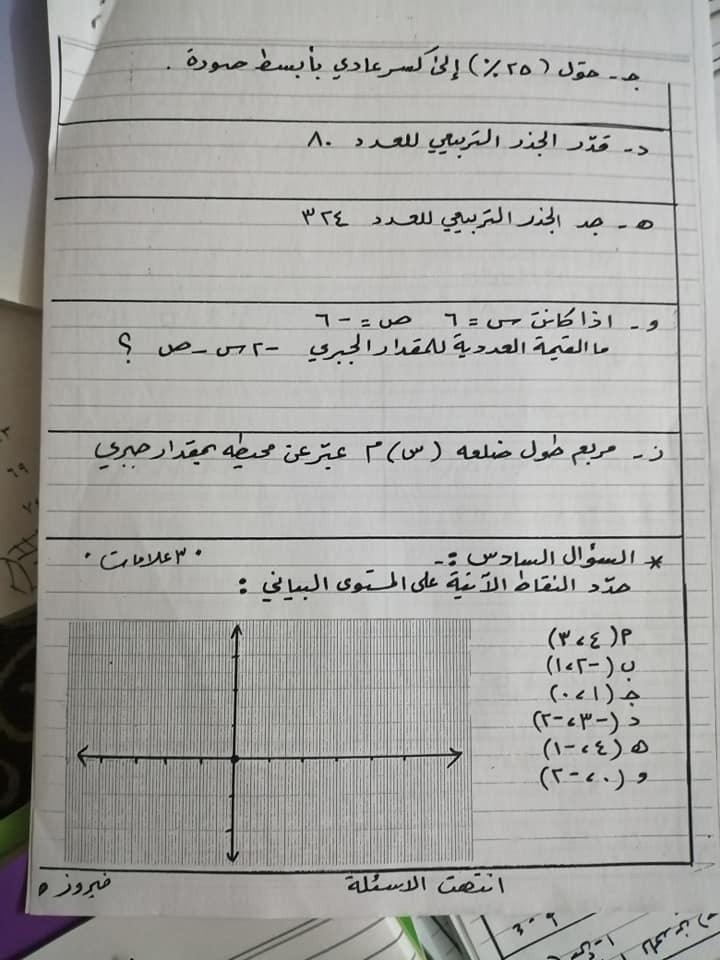 جـ - حوّل (٢٥٪) إلى كسر عادي بأبسط صورة .
د - قدّر الجذر التربيعي للعدد ٨٠
هـ - جد الجذر التربيعي للعدد ٣٢٤
و - اذا كانت س = ٦ ص = -٦
ما القيمة العددية للمقدار الجبري -٢س - ص ؟
ز - مربع طول ضلعه (س) م عبّر عن محيطه بمقدار جبري
* السؤال السادس :- ٣٠ علامات ٠
حدّد النقاط الآتية على المستوى البياني :
م (٤ ، ٣)
ب (-٢ ، ١)
جـ (١ ، ٠)
د (-٣ ، -٢)
هـ (٤ ، -١)
و (٠ ، -٢)
انتهت الاسئلة
فيروز ٥